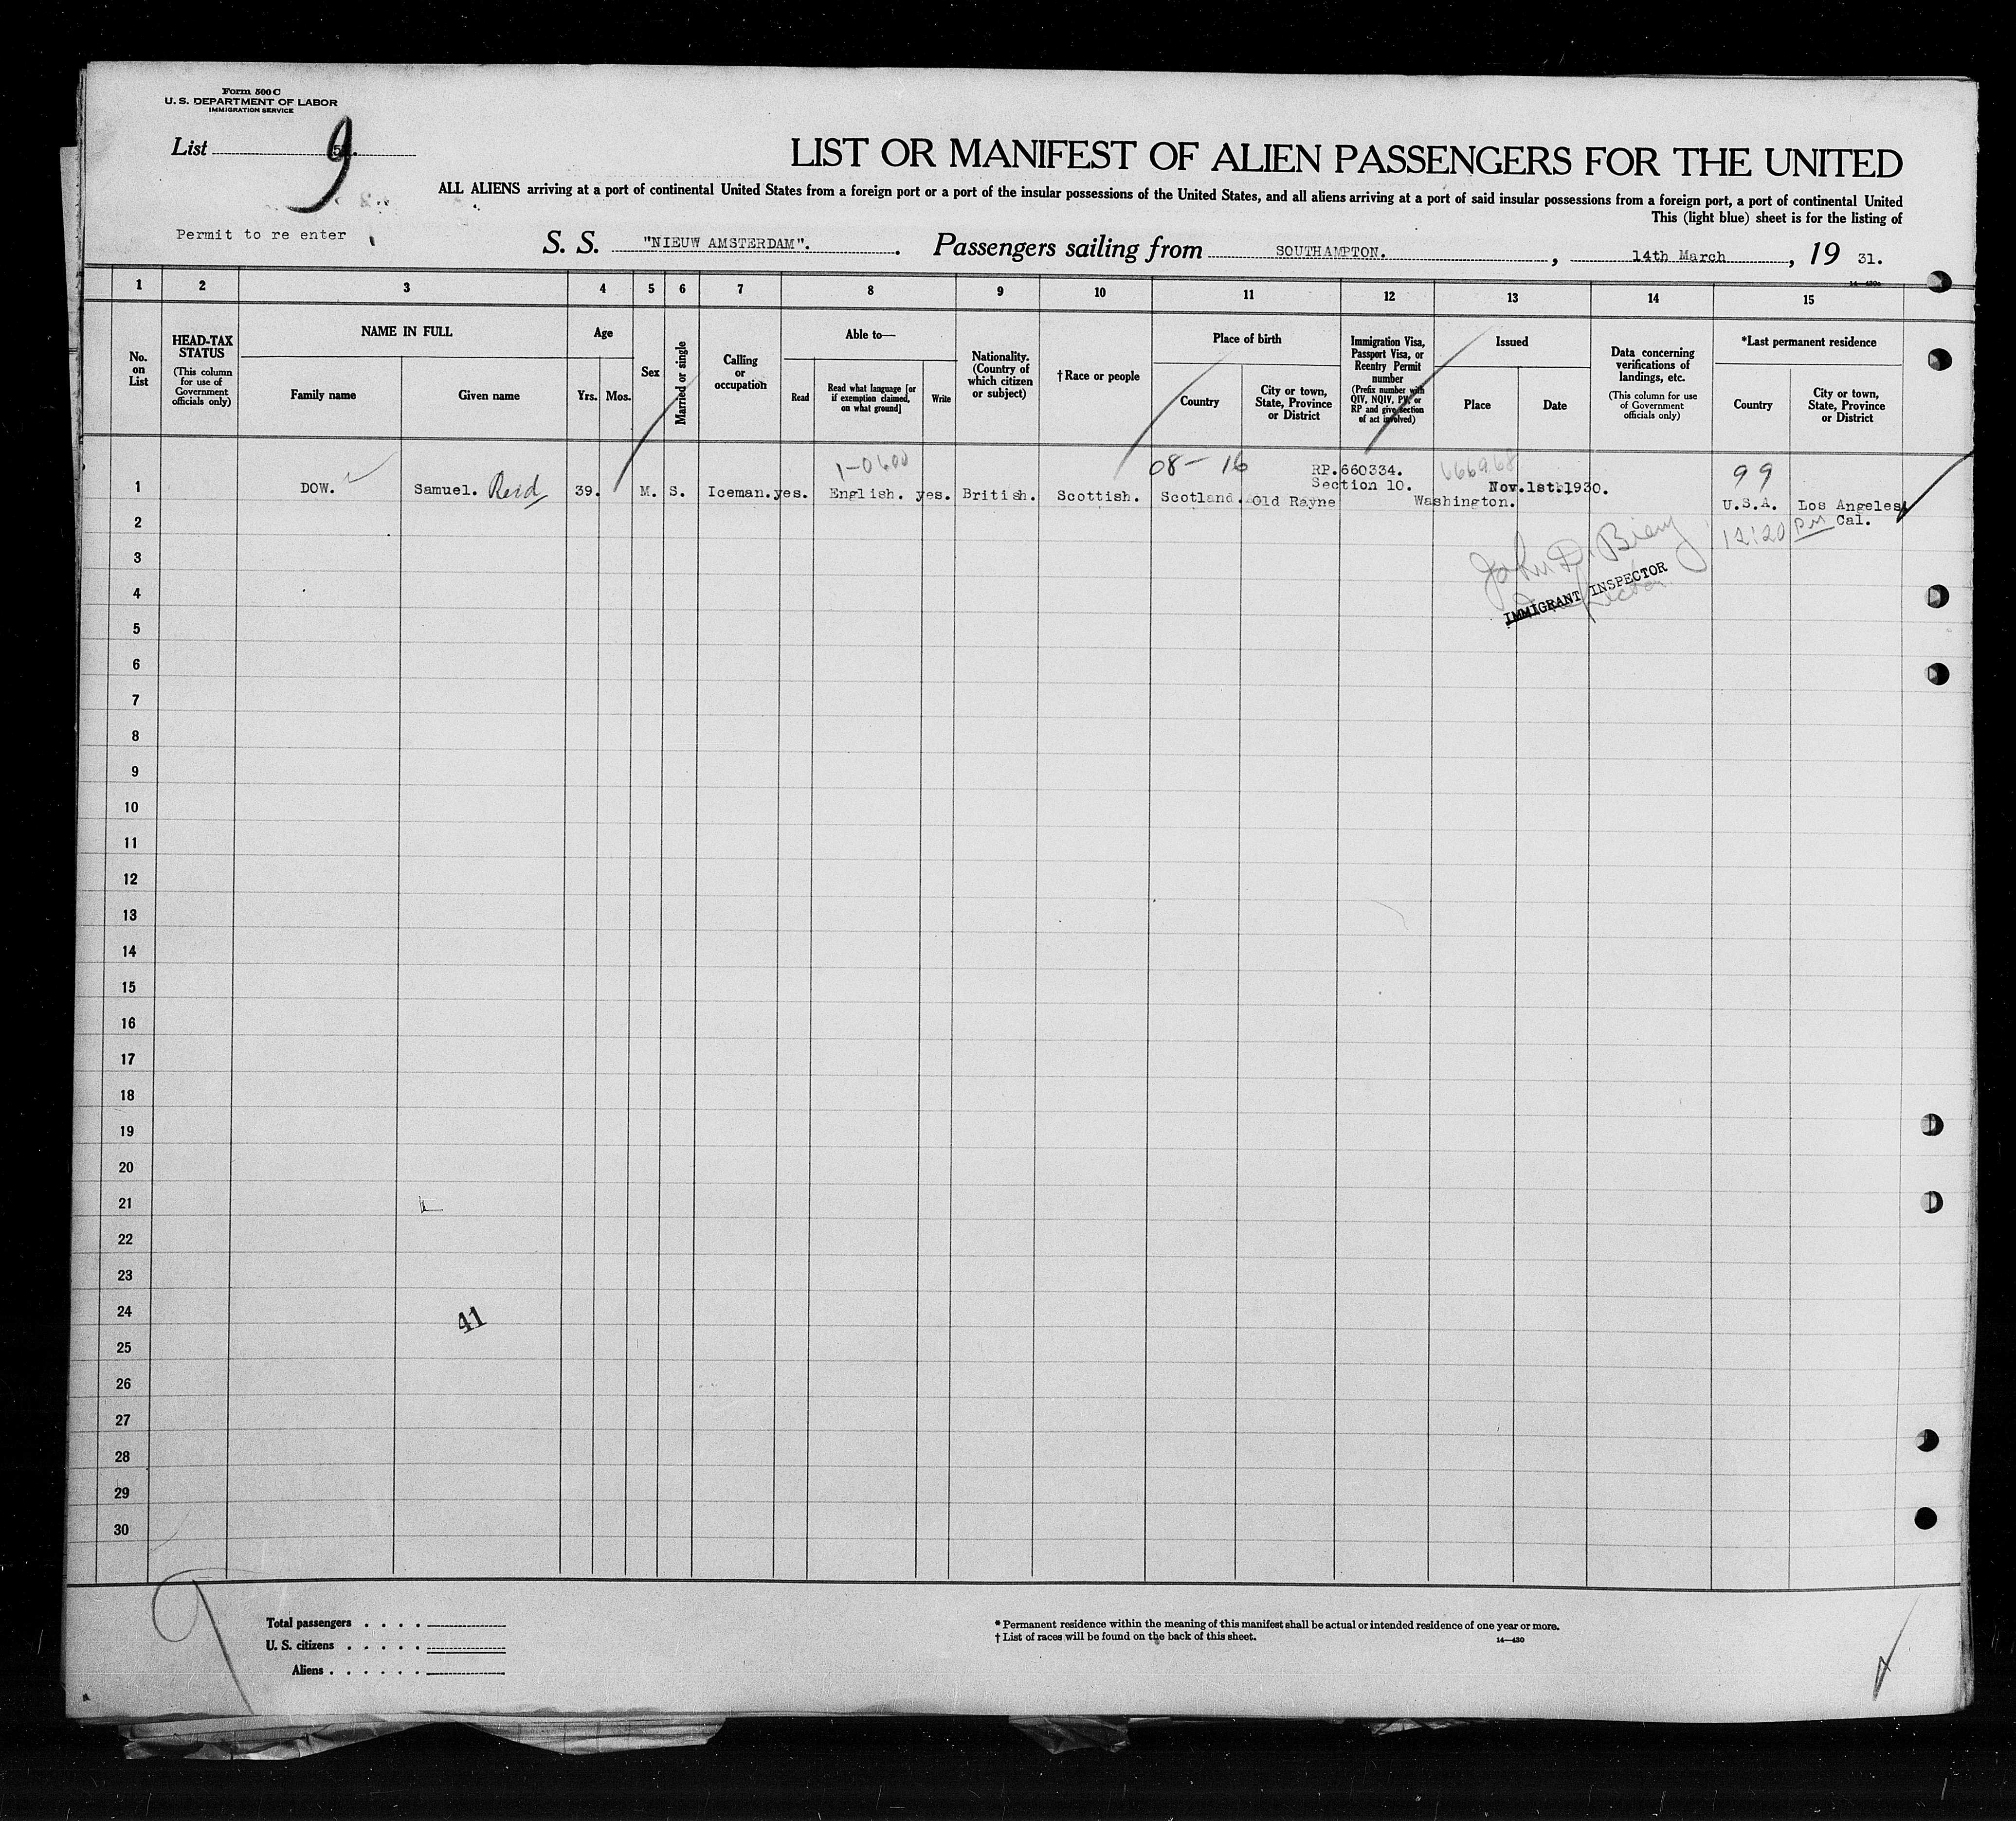 Form 500 C
U. S. DEPARTMENT OF LABOR
IMMIGRATION SERVICE
List 9
LIST OR MANIFEST OF ALIEN PASSENGERS FOR THE UNITED
ALL ALIENS arriving at a port of continental United States from a foreign port or a port of the insular possessions of the United States, and all aliens arriving at a port of said insular possessions from a foreign port, a port of continental United
This (light blue) sheet is for the listing of
Permit to re enter
S. S. "NIEUW AMSTERDAM". Passengers sailing from SOUTHAMPTON. , 14th March , 19 31.
14—430a
1 2 3 4 5 6 7 8 9 10 11 12 13 14 15
No. on List
HEAD-TAX STATUS
(This column for use of Government officials only)
NAME IN FULL
Family name
Given name
Age
Yrs.
Mos.
Sex
Married or single
Calling or occupation
Able to—
Read
Read what language [or if exemption claimed, on what ground]
Write
Nationality. (Country of which citizen or subject)
†Race or people
Place of birth
Country
City or town, State, Province or District
Immigration Visa, Passport Visa, or Reentry Permit number
(Prefix number with QIV, NQIV, PV, or RP and give section of act involved)
Issued
Place
Date
Data concerning verifications of landings, etc.
(This column for use of Government officials only)
*Last permanent residence
Country
City or town, State, Province or District
1-0600
08-16
RP.660334.
666968
99
1 DOW. Samuel. Reid 39. M. S. Iceman. yes. English. yes. British. Scottish. Scotland. Old Rayne Section 10. Washington. Nov.1st.1930. U.S.A. Los Angeles
Cal.
12:20 PM
2
John D. Bieny
3
IMMIGRANT INSPECTOR
Inspector
4
5
6
7
8
9
10
11
12
13
14
15
16
17
18
19
20
21
22
23
24
41
25
26
27
28
29
30
9
Total passengers . . . .
U. S. citizens . . . . .
Aliens . . . . . .
* Permanent residence within the meaning of this manifest shall be actual or intended residence of one year or more.
† List of races will be found on the back of this sheet.
14—430